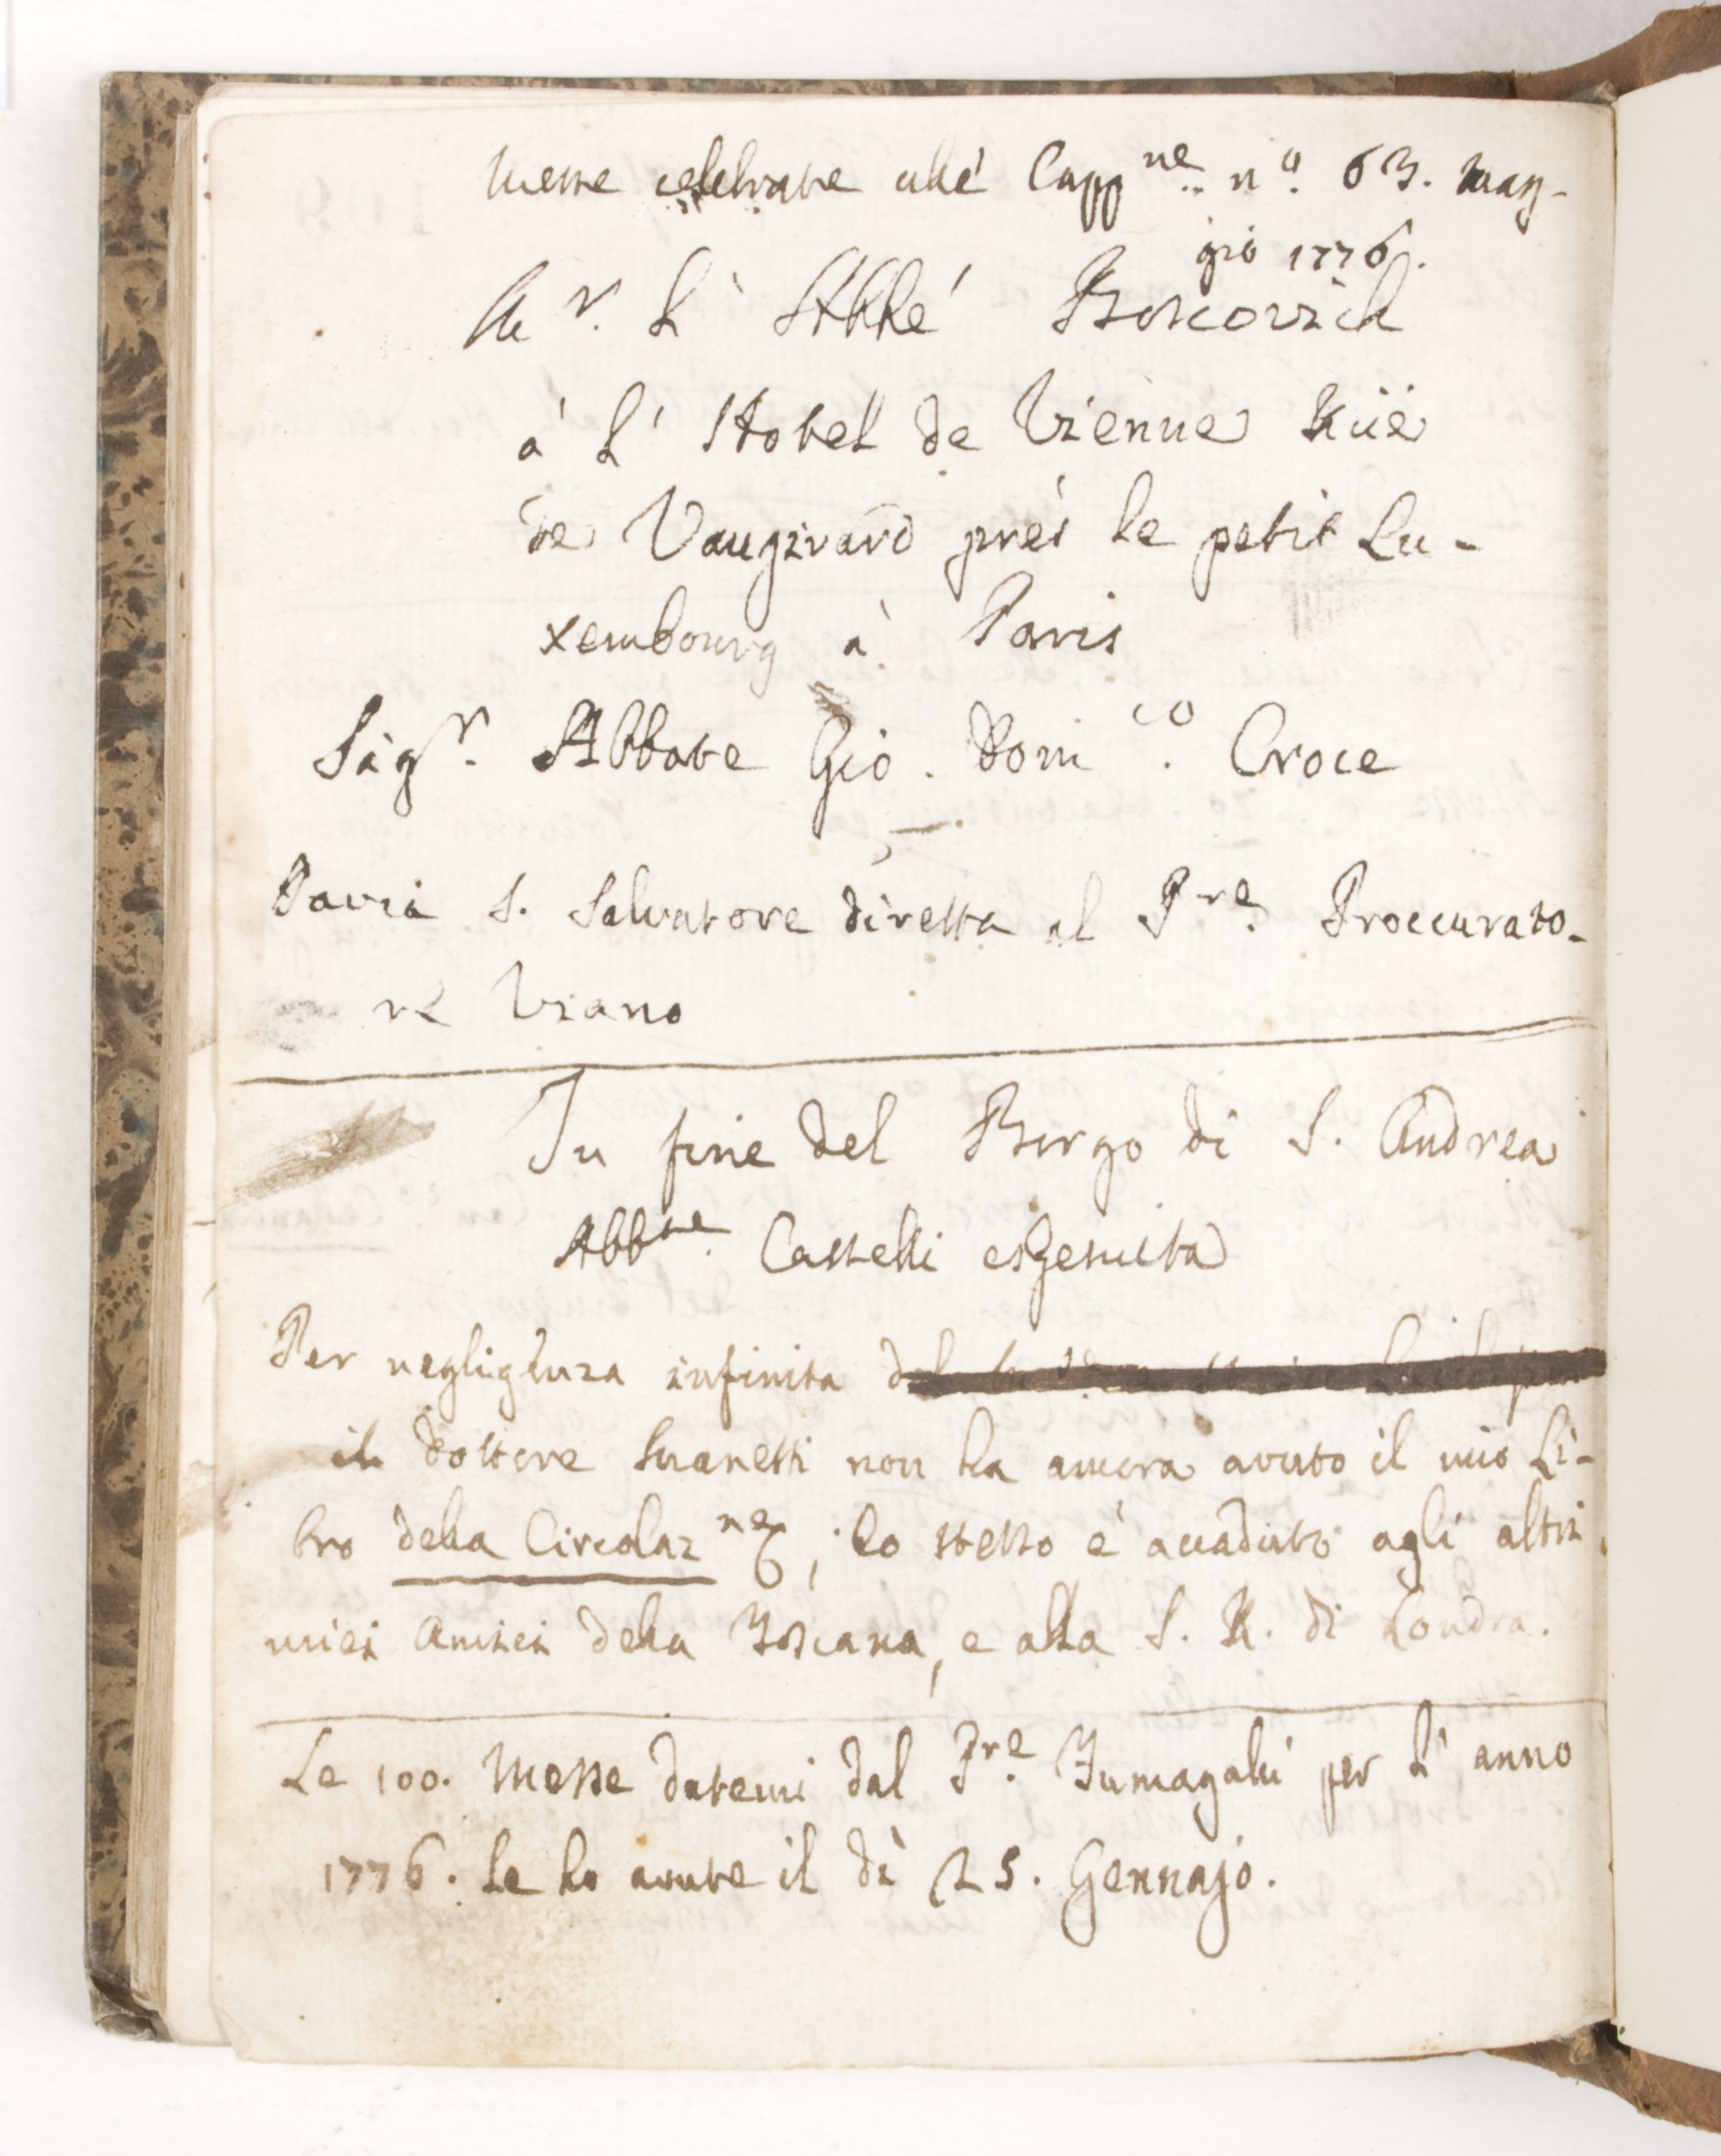 Messe celebrate alle Capp.ne n.o 63. mag-
gio 1776.
M.r L' Abbé Boscovich
à L' Hotel de Vienne Rüe
de Vaugirard près le petit Lu-
xembourg à Paris
Sig.r Abbate Gio. Dom.co Croce
Pavia S. Salvatore diretta al P.re Proccurato-
re Viano
In fine del Borgo di S. Andrea
Abb.te Castelli esGesuita
Per negligenza infinita
il dottore non ha ancora avuto il mio Li-
bro della Circolaz.ne; lo stesso è accaduto agli altri
miei Amici della Toscana, e alla S. R. di Londra.
Le 100. Messe datemi dal P.re Fumagalli per L' anno
1776. Le ho avute il dì 25. Gennajo.